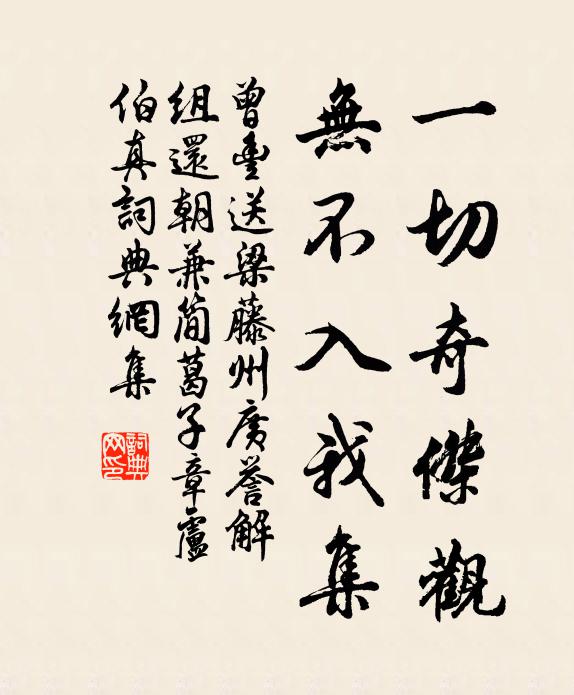 一切奇傑觀
無不入我集
曾豐送梁藤州廣譽解
組還朝兼簡葛子章盧
伯真詞典網集
詞典网印